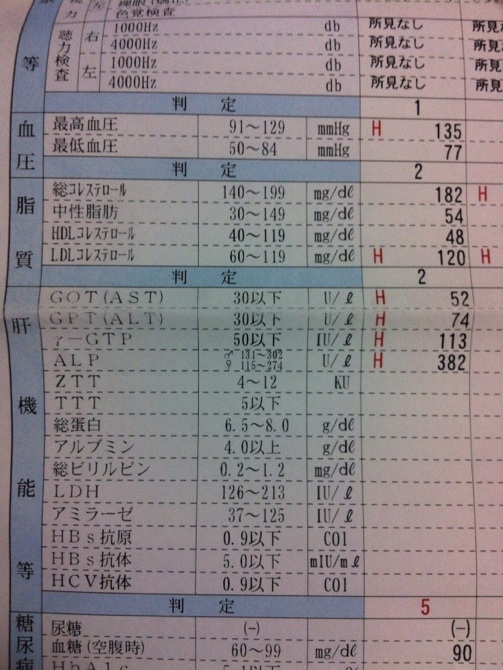 色覚検査
聴力検査 右 1000Hz db 所見なし 所見
4000Hz db 所見なし 所見
左 1000Hz db 所見なし 所見
等 4000Hz db 所見なし 所見
判定 1
血圧 最高血圧 91～129 mmHg H 135
最低血圧 50～84 mmHg 77
判定 2
脂質 総コレステロール 140～199 mg/dℓ 182 H
中性脂肪 30～149 mg/dℓ 54
HDLコレステロール 40～119 mg/dℓ 48
LDLコレステロール 60～119 mg/dℓ H 120 H
判定 2
肝機能等 GOT(AST) 30以下 U/ℓ H 52
GPT(ALT) 30以下 U/ℓ H 74
γ-GTP 50以下 IU/ℓ H 113
ALP ♂131～302 ♀115～274 U/ℓ H 382
ZTT 4～12 KU
TTT 5以下
総蛋白 6.5～8.0 g/dℓ
アルブミン 4.0以上 g/dℓ
総ビリルビン 0.2～1.2 mg/dℓ
LDH 126～213 IU/ℓ
アミラーゼ 37～125 IU/ℓ
HBs抗原 0.9以下 COI
HBs抗体 5.0以下 mIU/mℓ
HCV抗体 0.9以下 COI
判定 5
糖尿病 尿糖 (-) (-)
血糖(空腹時) 60～99 mg/dℓ 90